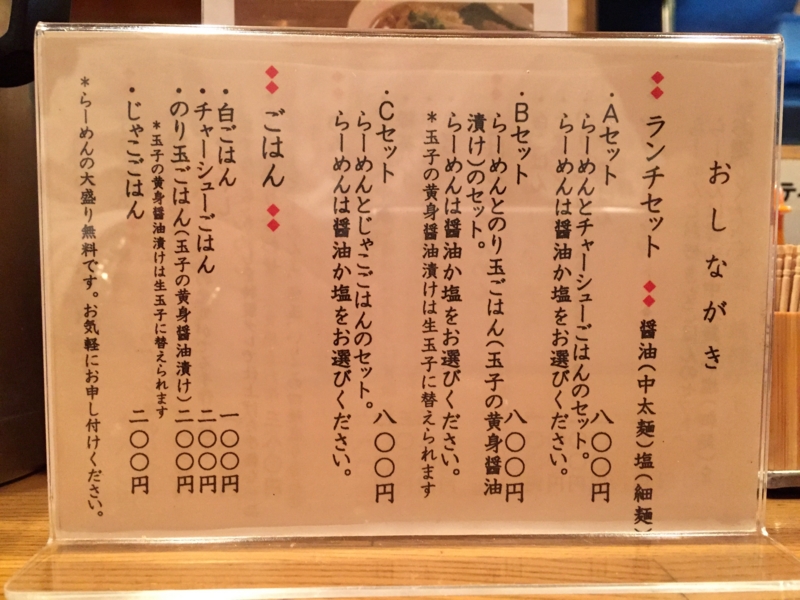 おしながき
◆◆ ランチセット ◆◆ 醤油(中太麺)塩(細麺)
・Aセット 八〇〇円
らーめんとチャーシューごはんのセット。
らーめんは醤油か塩をお選びください。
・Bセット 八〇〇円
らーめんとのり玉ごはん(玉子の黄身醤油
漬け)のセット。
らーめんは醤油か塩をお選びください。
*玉子の黄身醤油漬けは生玉子に替えられます
・Cセット 八〇〇円
らーめんとじゃこごはんのセット。
らーめんは醤油か塩をお選びください。
◆◆ ごはん ◆◆
・白ごはん 一〇〇円
・チャーシューごはん 二〇〇円
・のり玉ごはん(玉子の黄身醤油漬け) 二〇〇円
*玉子の黄身醤油漬けは生玉子に替えられます
・じゃこごはん 二〇〇円
*らーめんの大盛り無料です。お気軽にお申し付けください。